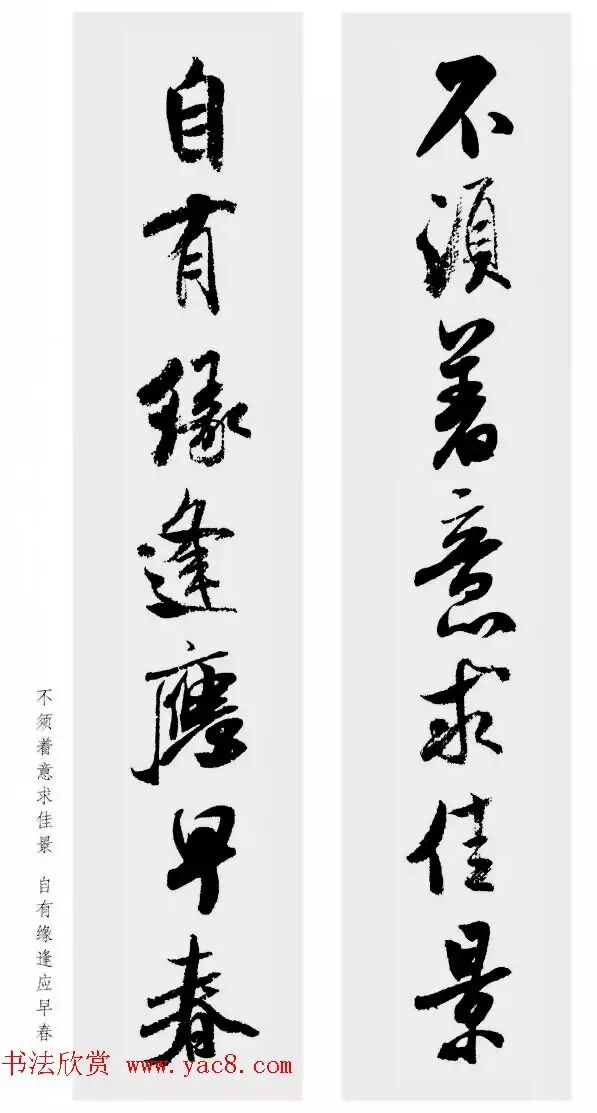 不須著意求佳景
自有緣逢應早春
不须着意求佳景 自有缘逢应早春
书法欣赏 www.yac8.com